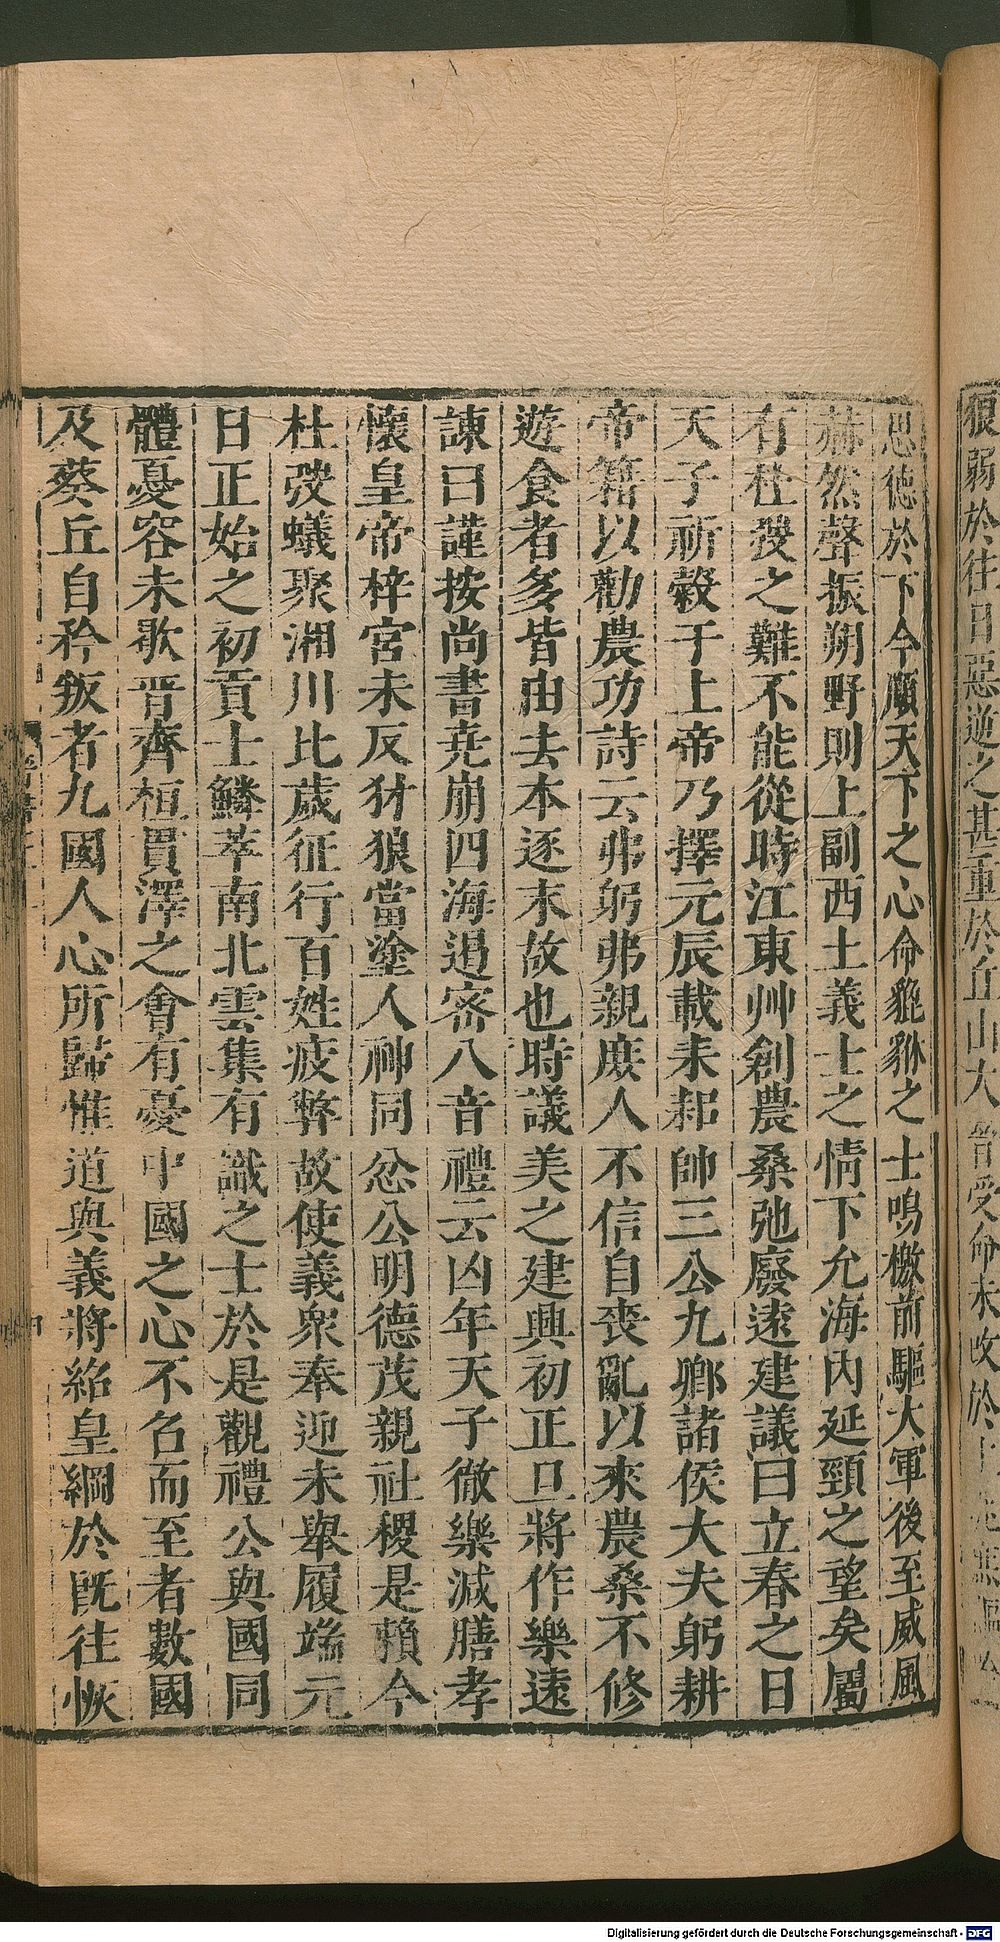 狼弱於往日惡逆之甚重於丘山大晉受命未改於上
思德於下今順天下之心命貔貅之士鳴檄前驅大軍後至威風
赫然聲振朔野則上副西土義士之情下允海內延頸之望矣屬
有杜弢之難不能從時江東艸創農桑弛廢遠建議曰立春之日
天子祈穀于上帝乃擇元辰載耒耜帥三公九卿諸侯大夫躬耕
帝籍以勸農功詩云弗躬弗親庶人不信自喪亂以來農桑不修
遊食者多皆由去本逐末故也時議美之建興初正旦將作樂遠
諫曰謹按尚書堯崩四海遏密八音禮云凶年天子徹樂減膳孝
懷皇帝梓宮未反豺狼當塗人神同忿公明德茂親社稷是賴今
杜弢蟻聚湘川比歲征行百姓疲弊故使義衆奉迎未舉履端元
日正始之初貢士鱗萃南北雲集有識之士於是觀禮公與國同
體憂容未歇晋齊桓貫澤之會有憂中國之心不名而至者數國
及葵丘自矜叛者九國人心所歸惟道與義將紹皇綱於旣往恢
Digitalisierung gefördert durch die Deutsche Forschungsgemeinschaft - DFG